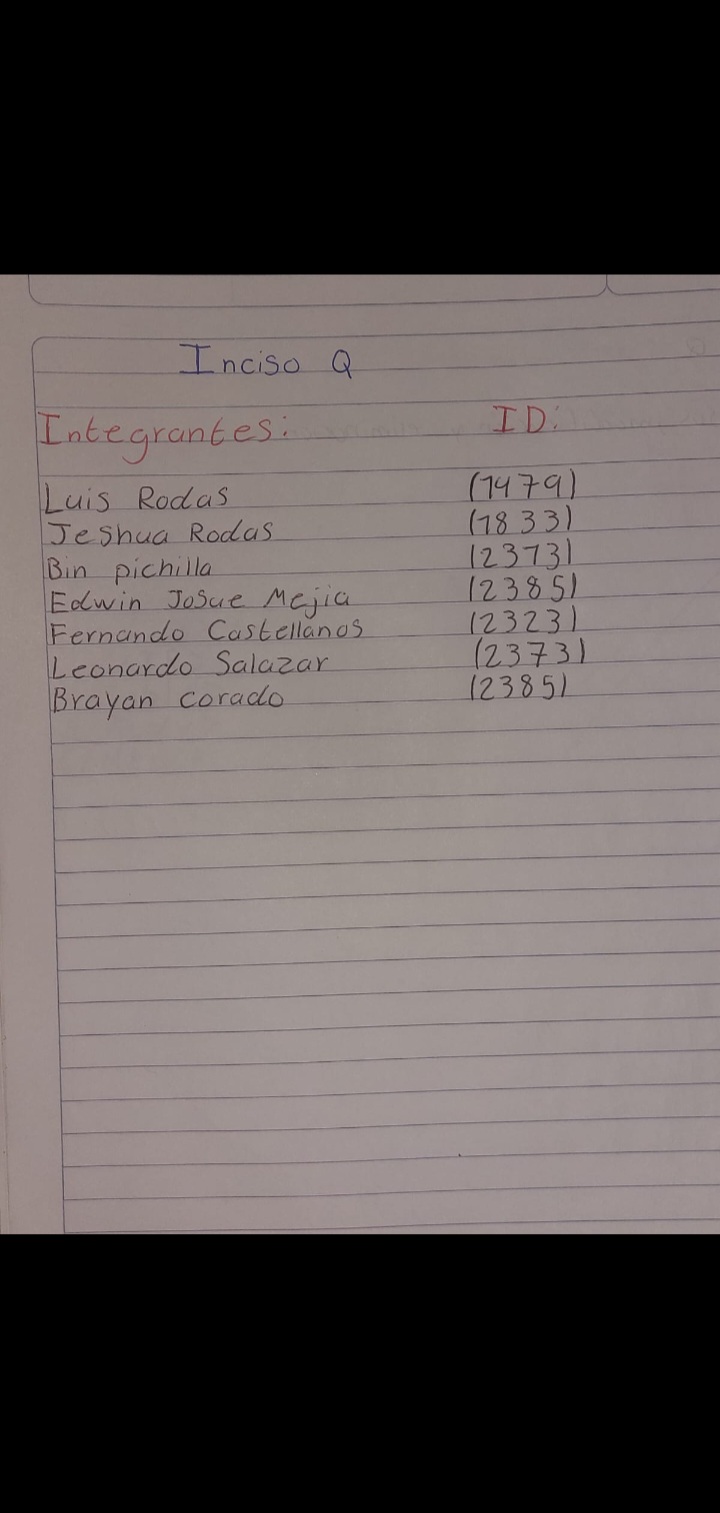 Inciso Q
Integrantes: ID:
Luis Rodas (1479)
Jeshua Rodas (1833)
Bin pichilla (2373)
Edwin Josue Mejia (2385)
Fernando Castellanos (2323)
Leonardo Salazar (2373)
Brayan corado (2385)